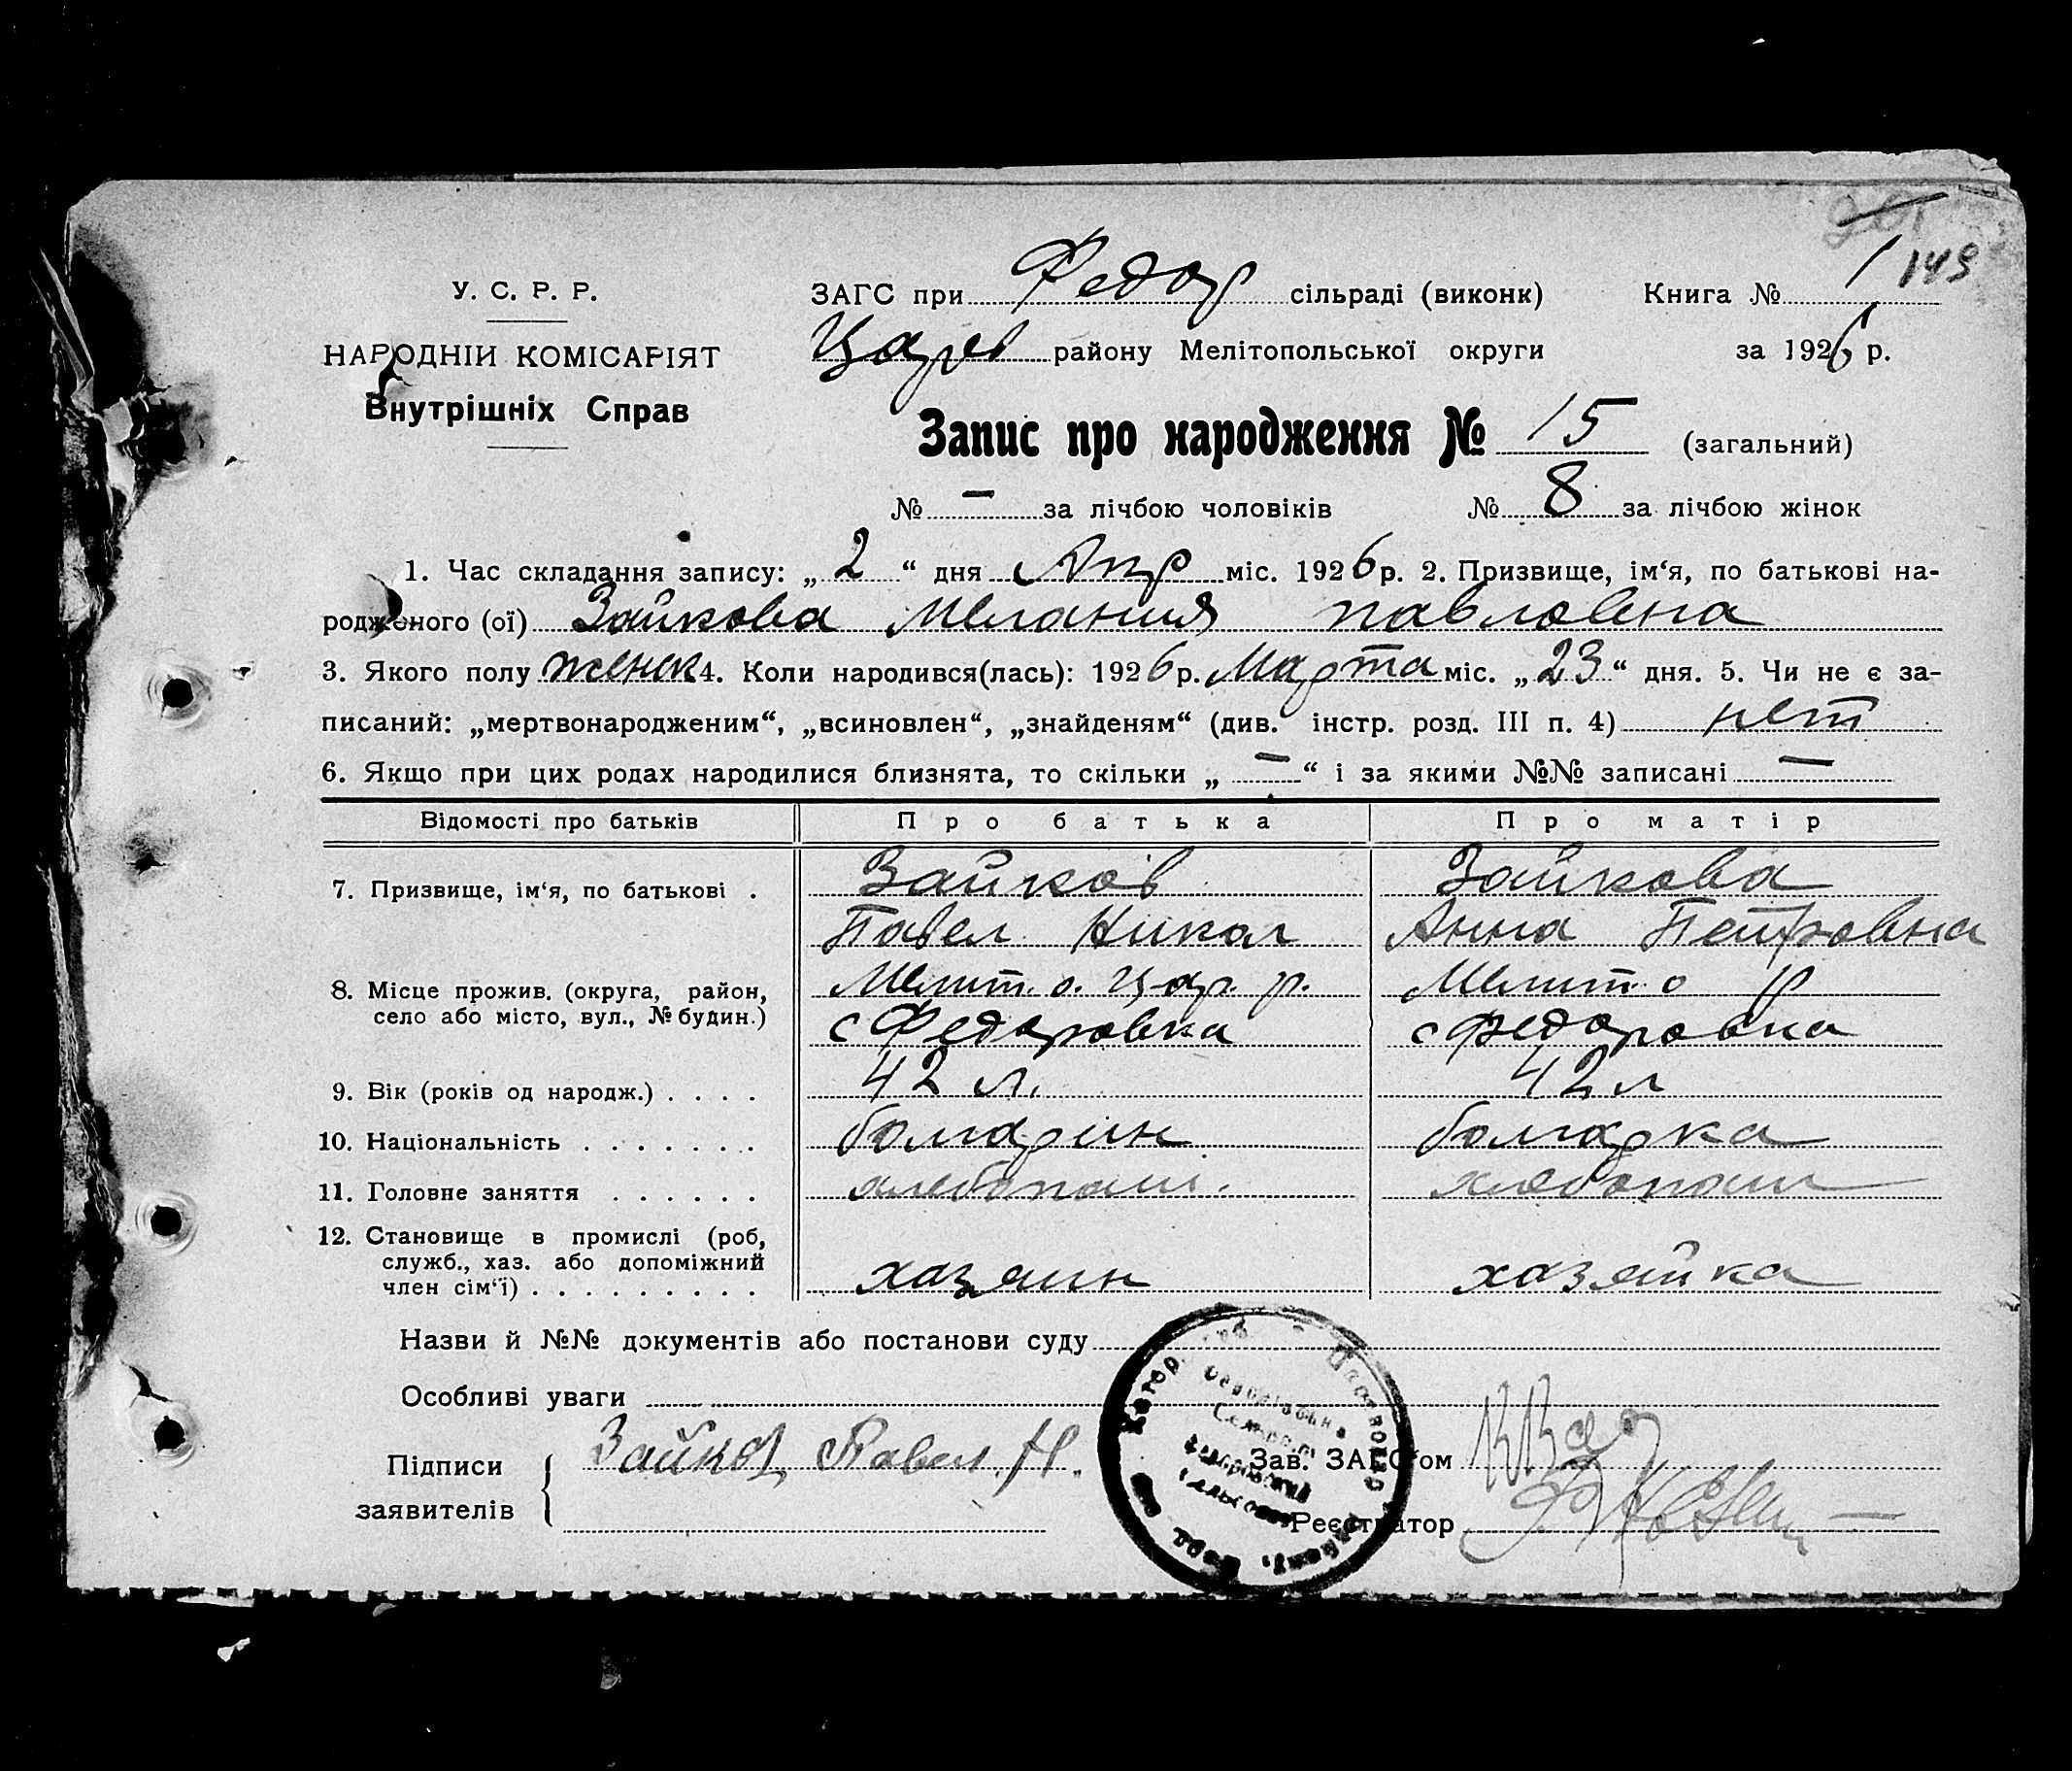 149
У. С. Р. Р.
ЗАГС при Федор сільраді (виконк) Книга № 1
НАРОДНІЙ КОМІСАРІЯТ
Царев району Мелітопольської округи за 1926 р.
Внутрішніх Справ
Запис про народження № 15 (загальний)
№ — за лічбою чоловіків № 8 за лічбою жінок
1. Час складання запису: „2“ дня Апр міс. 1926 р. 2. Призвище, ім‘я, по батькові на-
родженого (ої) Зайкова Мелания Павловна
3. Якого полу женск 4. Коли народився(лась): 1926 р. Марта міс. „23“ дня. 5. Чи не є за-
писаний: „мертвонародженим“, „всиновлен“, „знайденям“ (див. інстр. розд. III п. 4) нет
6. Якщо при цих родах народилися близнята, то скільки „—“ і за якими №№ записані —
Відомості про батьків Про батька Про матір
7. Призвище, ім‘я, по батькові . Зайков Зайкова
Павел Никол Анна Петровна
8. Місце прожив. (округа, район, Мелит. о. Цар. р. Мелит. о р
село або місто, вул., № будин.) с Федоровка с Федоровка
9. Вік (років од народж.) . . . . 42 л. 42 л
10. Національність . . . . . . . болгарин болгарка
11. Головне заняття . . . . . . хлебопаш. хлебопаш
12. Становище в промислі (роб,
служб., хаз. або допоміжний
член сім‘ї) . . . . . . . . . хазяин хазяйка
Назви й №№ документів або постанови суду
Особливі уваги
Підписи
заявителів
Зайков Павел. Н.
Зав. ЗАГС‘ом
Реєстратор